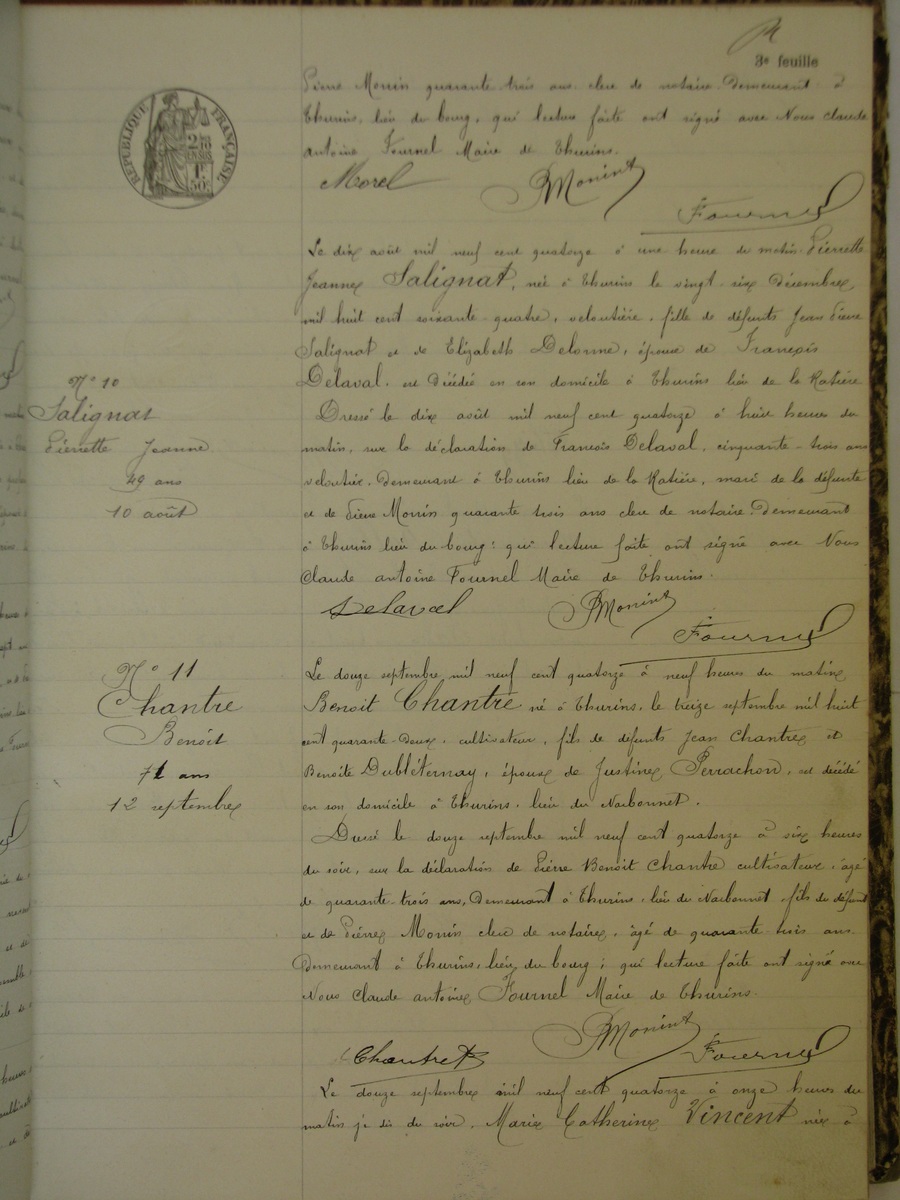 3e feuille
RÉPUBLIQUE FRANÇAISE
Pierre Monin quarante trois ans clerc de notaire. Demeurant à
Thurins, lieu du bourg, qui lecture faite ont signé avec Nous Claude
antoine Fournel Maire de Thurins.
Morel PMonint
Fournel
Le dix août mil neuf cent quatorze à une heure du matin. Pierrette
Jeanne Salignat, née à Thurins le vingt-six Décembre,
mil huit cent soixante-quatre, veloutière, fille de défunts Jean Pierre
Salignat et de Elizabeth Delorme, épouse de François
Delaval, est décédé en son domicile à Thurins lieu de la Ratière
N° 10
Salignat
Pierrette Jeanne
49 ans
10 août
Dressé le dix août mil neuf cent quatorze à huit heures du
matin, sur la déclaration de François Delaval, cinquante-trois ans
veloutier, Demeurant à Thurins lieu de la Ratière, mari de la défunte
et de Pierre Monin quarante trois ans clerc de notaire. Demeurant
à Thurins lieu du bourg: qui lecture faite ont signé avec Nous
Claude antoine Fournel Maire de Thurins.
Delaval PMonint
Fournel
N° 11
Chantre
Benoit
71 ans
12 septembre
Le douze septembre mil neuf cent quatorze à neuf heures du matin
Benoit Chantre né à Thurins, le treize septembre mil huit
cent quarante-deux, cultivateur, fils de défunts Jean Chantre et
Benoîte, époux de Justine Perrachon, est décédé
en son domicile à Thurins, lieu du Narbonnet.
Dressé le douze septembre mil neuf cent quatorze à six heures
du soir, sur la déclaration de Pierre Benoit Chantre cultivateur, âgé
de quarante-trois ans, Demeurant à Thurins, lieu du Narbonnet, fils du défunt
et de Pierre Monin clerc de notaire, âgé de quarante trois ans
Demeurant à Thurins, lieu du bourg; qui lecture faite ont signé avec
Nous Claude antoine Fournel Maire de Thurins.
PMonint
Chantre Fournel
Le douze septembre mil neuf cent quatorze à onze heures du
matin je dis du soir, Marie Catherine Vincent née à